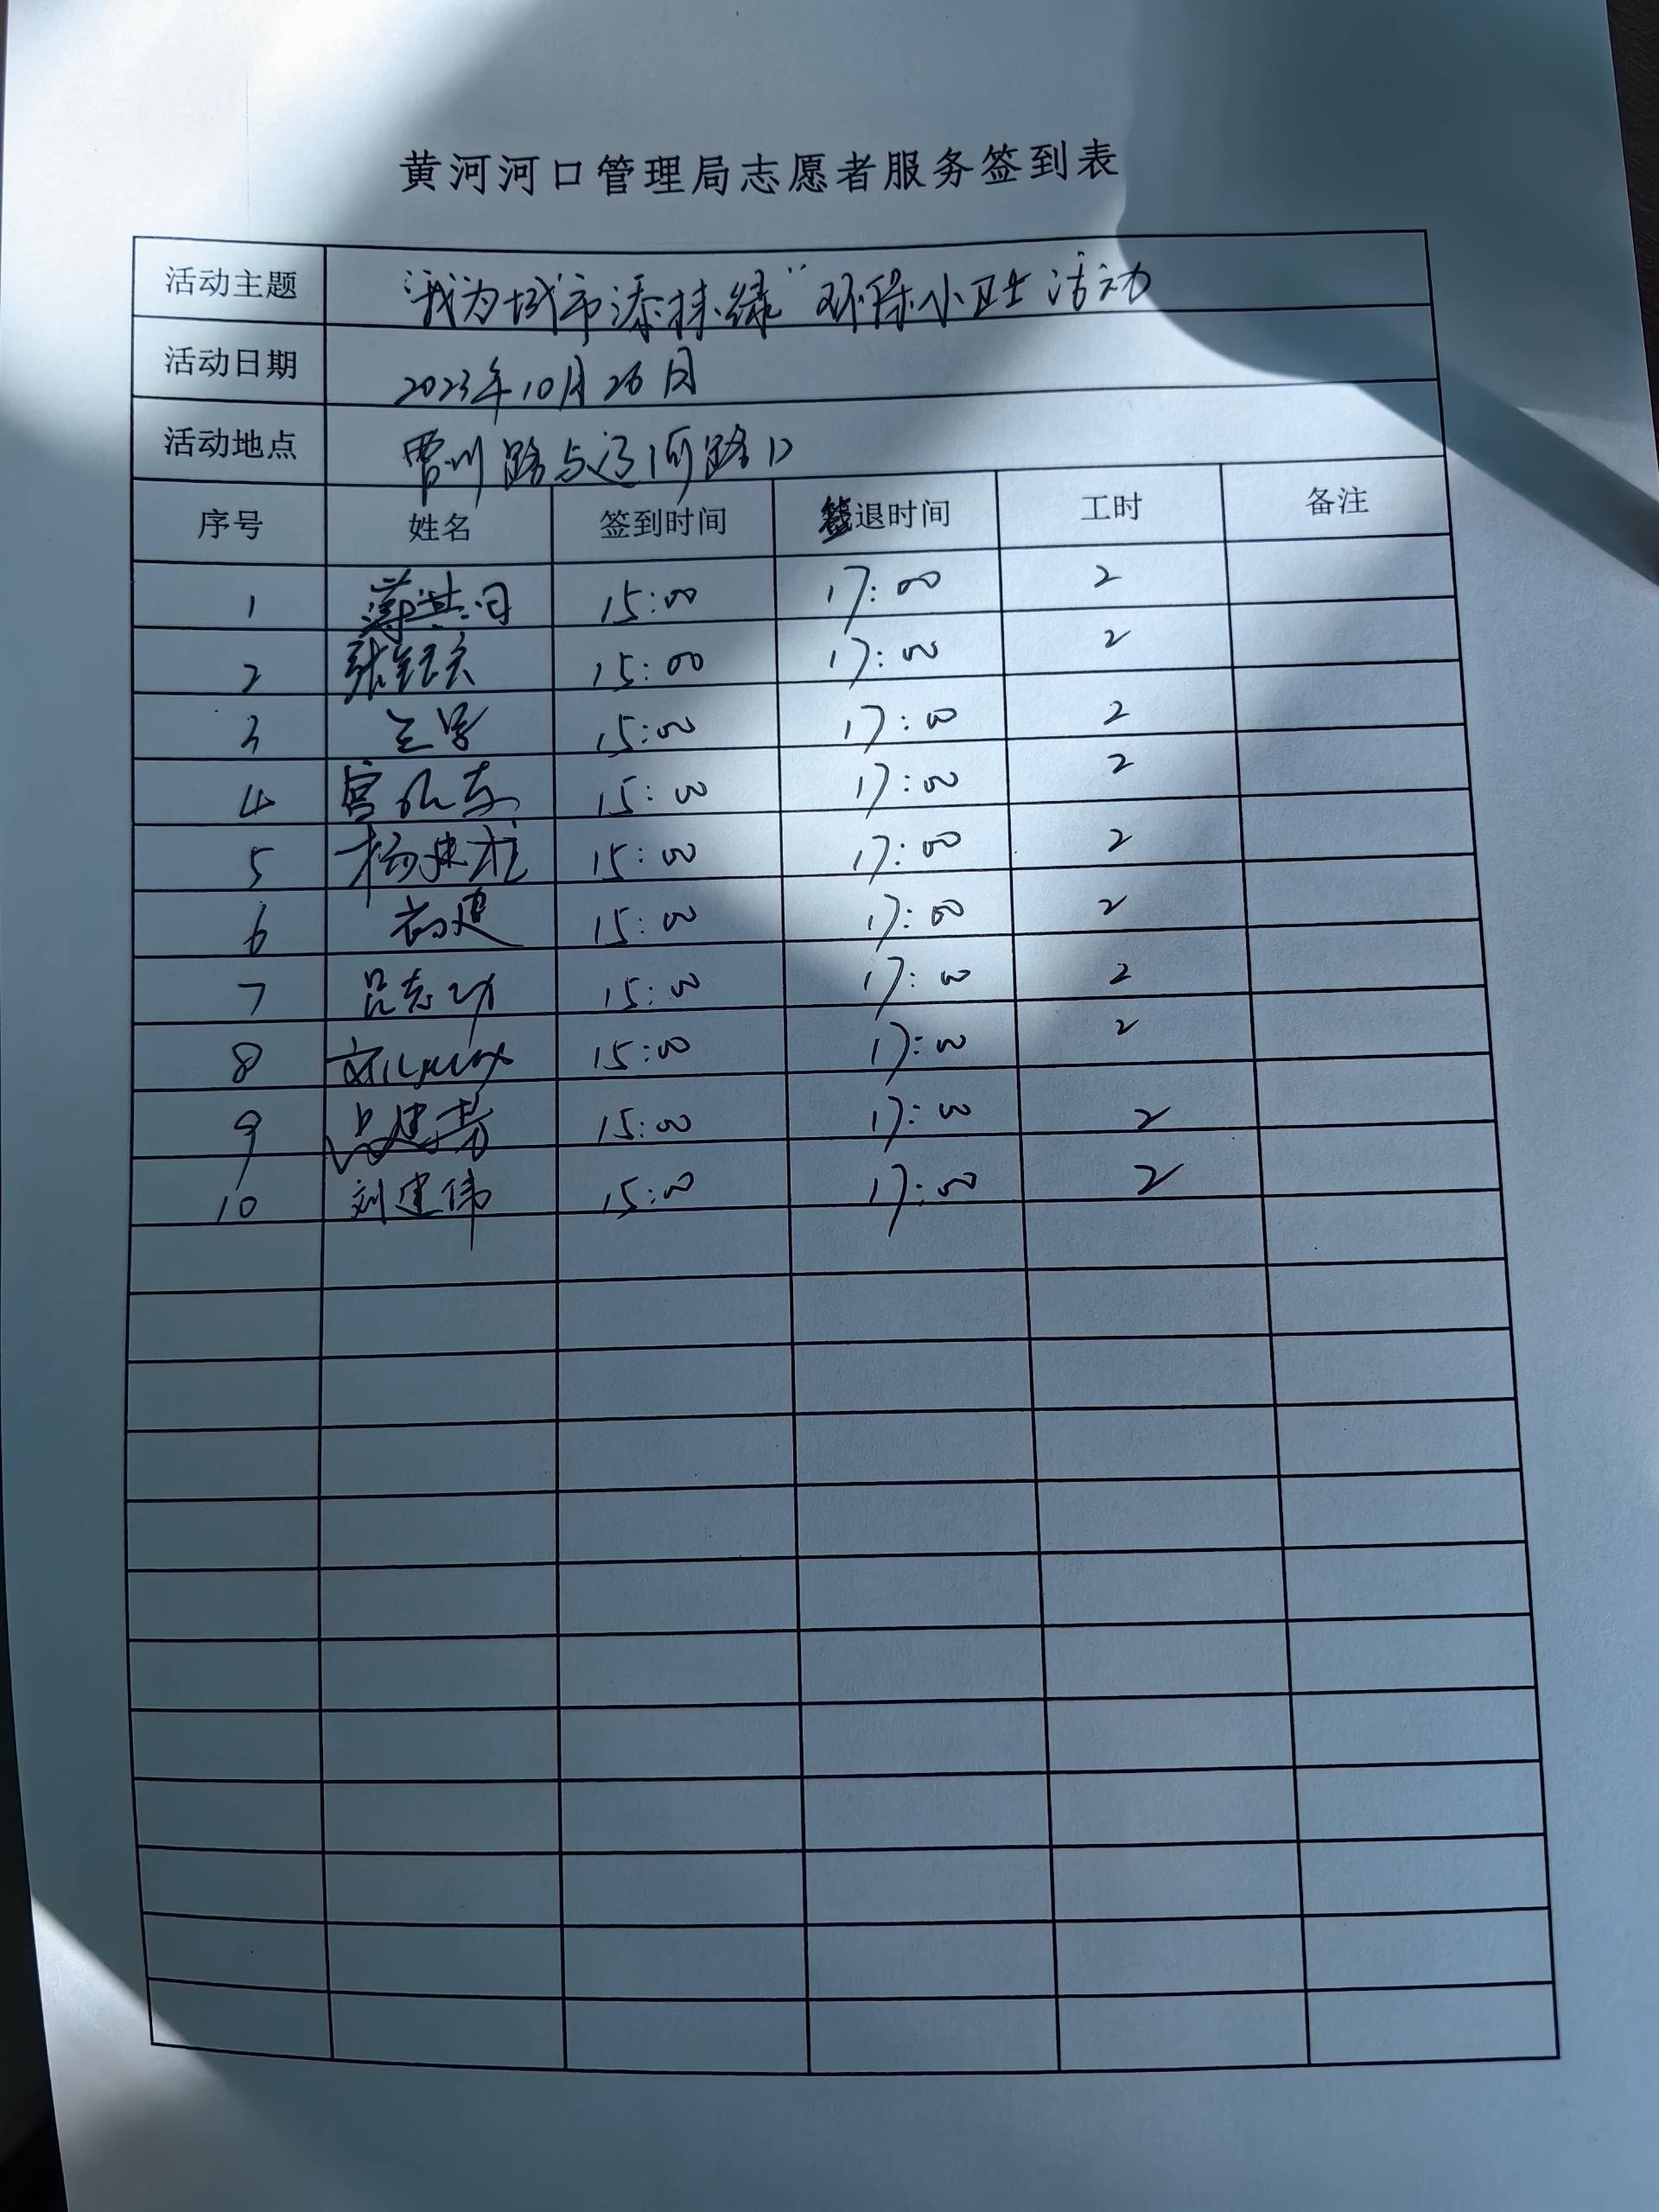 黄河河口管理局志愿者服务签到表
活动主题 “我为城市添抹绿”环保小卫士活动
活动日期 2023年10月26日
活动地点 曹州路与辽河路口
序号 姓名 签到时间 签退时间 工时 备注
1 15:00 17:00 2
2 15:00 17:00 2
3 15:00 17:00 2
4 15:00 17:00 2
5 15:00 17:00 2
6 15:00 17:00 2
7 吕志功 15:00 17:00 2
8 15:00 17:00 2
9 15:00 17:00 2
10 刘建伟 15:00 17:00 2